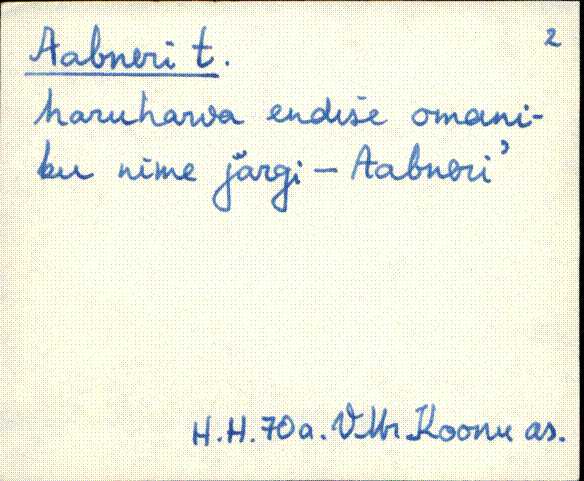 Aabneri t. 2
haruharva endise omani-
ku nime järgi - Aabneri'
H.H. 70 a. VMr Koonu as.